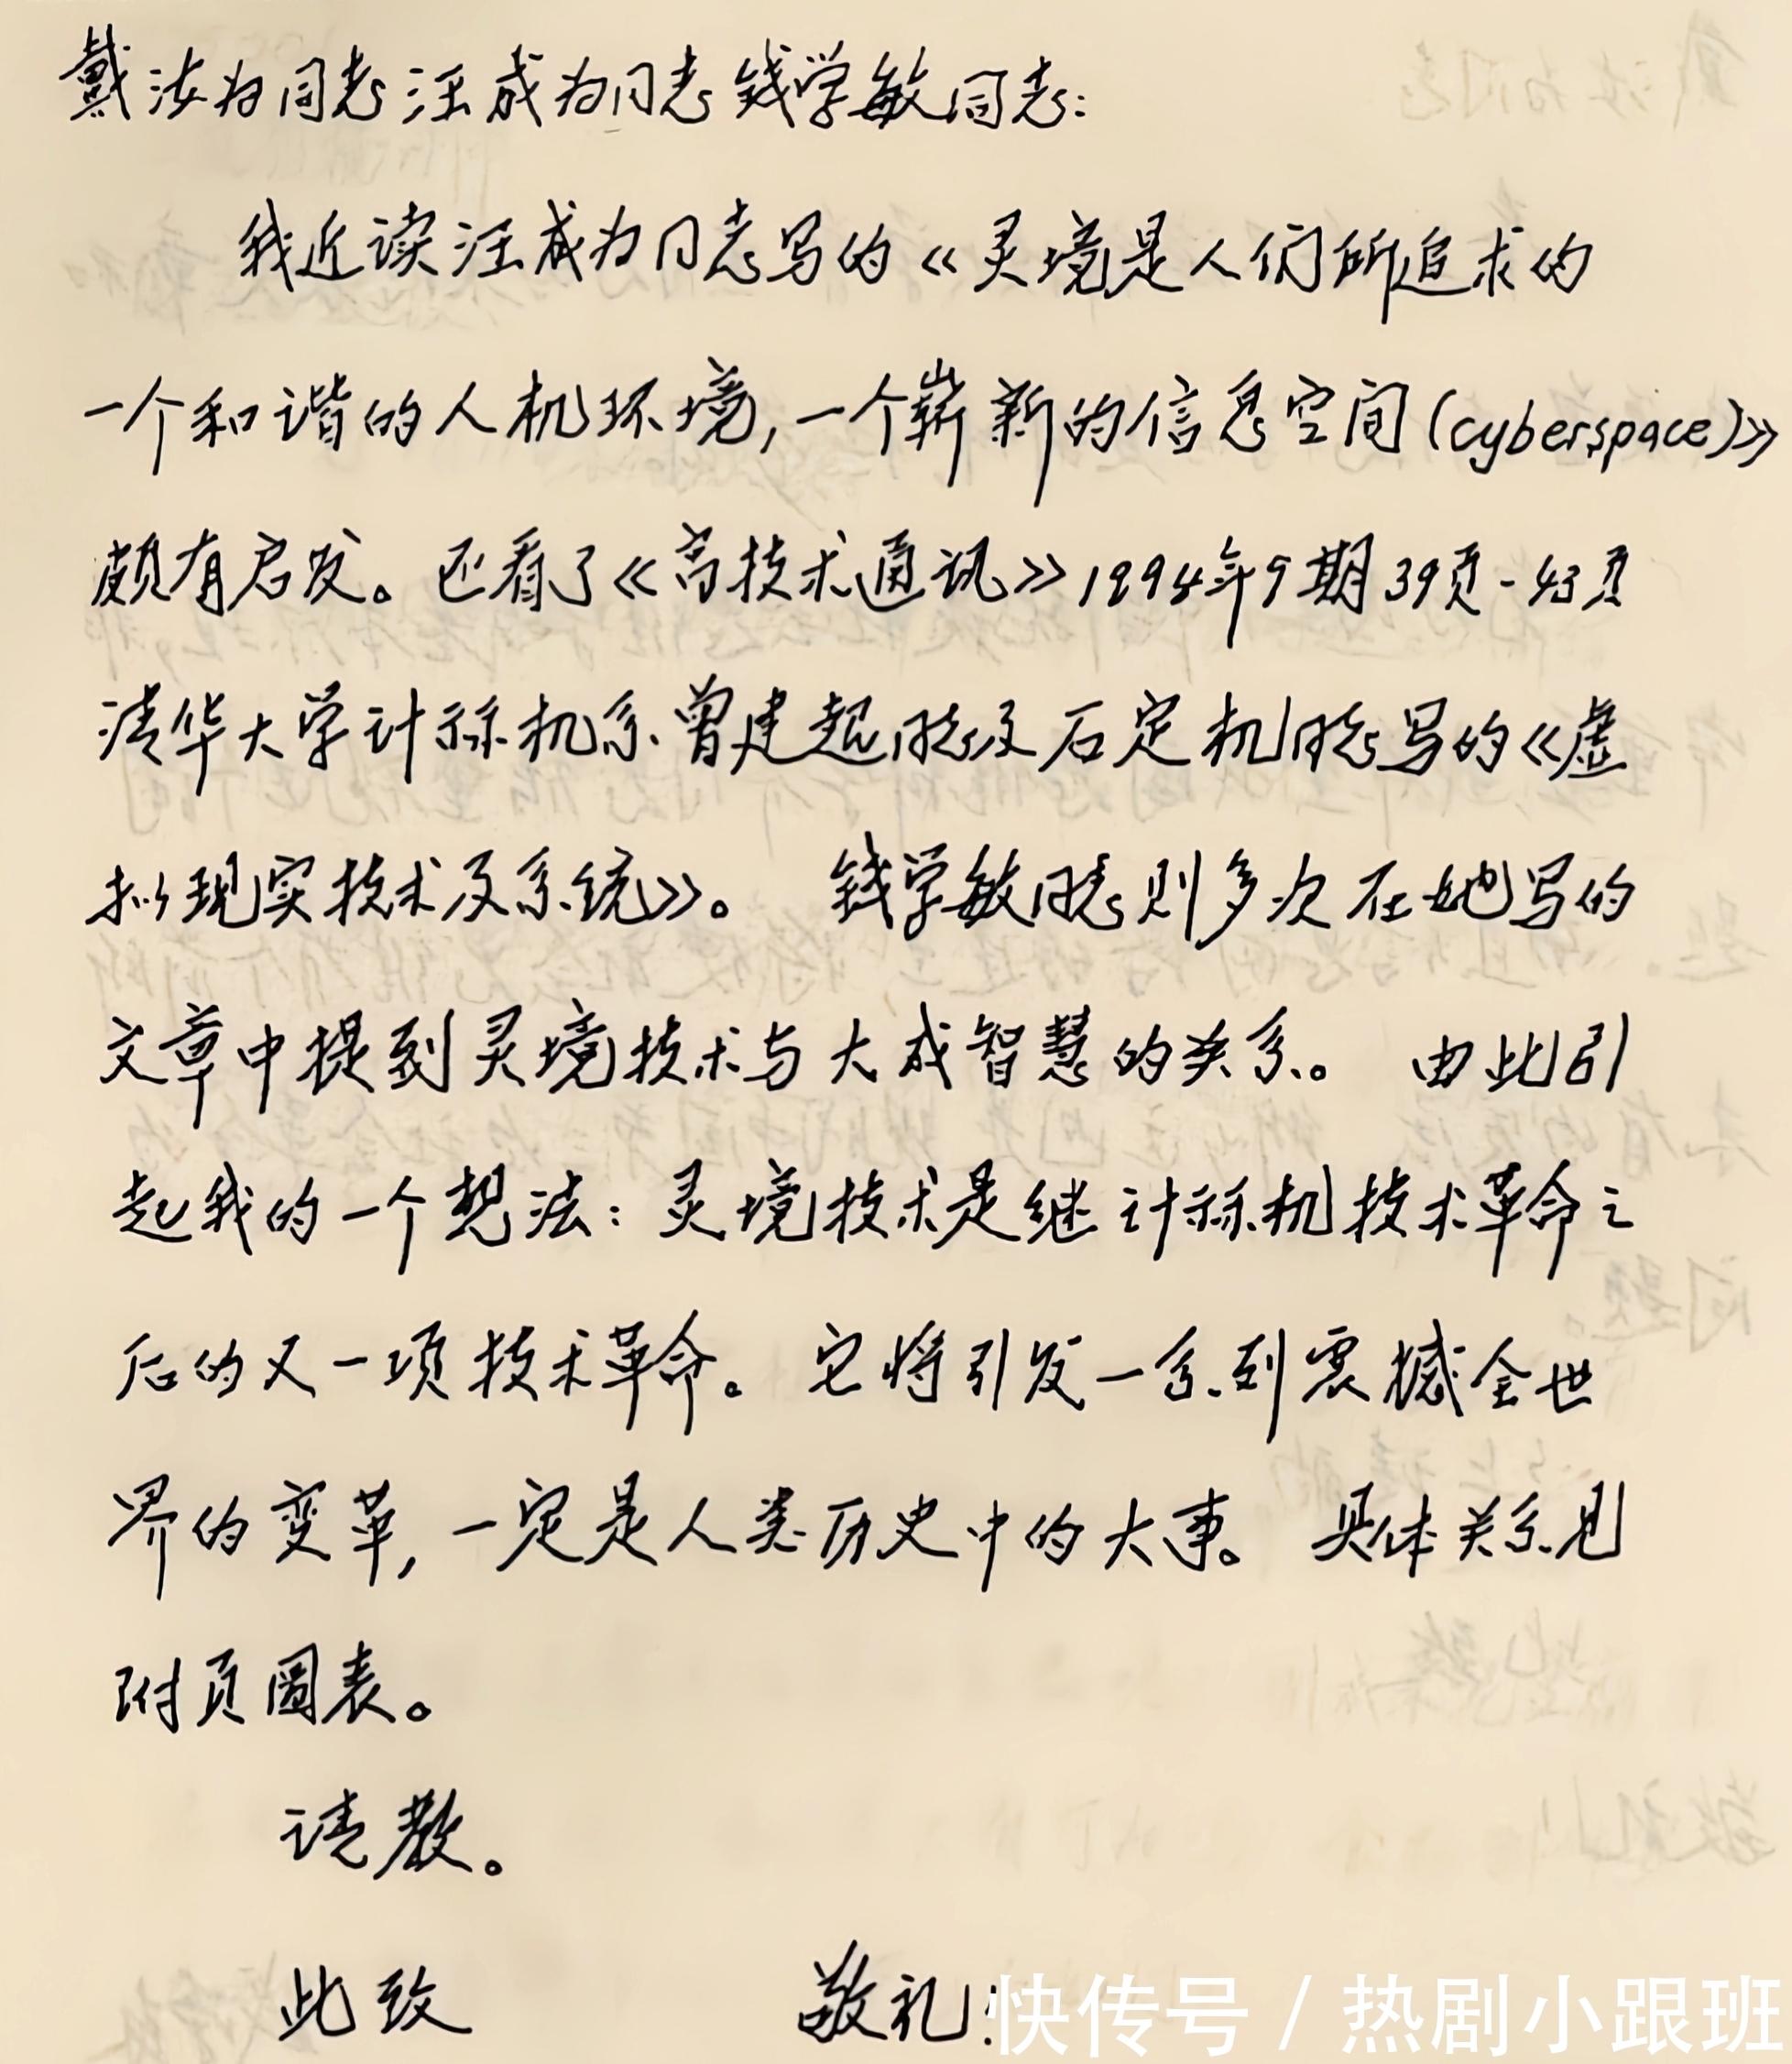 戴汝为同志汪成为同志钱学敏同志:
我近读汪成为同志写的《灵境是人们所追求的
一个和谐的人机环境,一个崭新的信息空间(cyberspace)》
颇有启发。还看了《高技术通讯》1994年9期39页-43页
清华大学计祘机系曾建超同志及石定机同志写的《虚
拟现实技术及系统》。 钱学敏同志则多次在她写的
文章中提到灵境技术与大成智慧的关系。 由此引
起我的一个想法:灵境技术是继计祘机技术革命之
后的又一项技术革命。它将引发一系列震撼全世
界的变革,一定是人类历史中的大事。 具体关系见
附页圖表。
请教。
此致 敬礼!
快传号/热剧小跟班